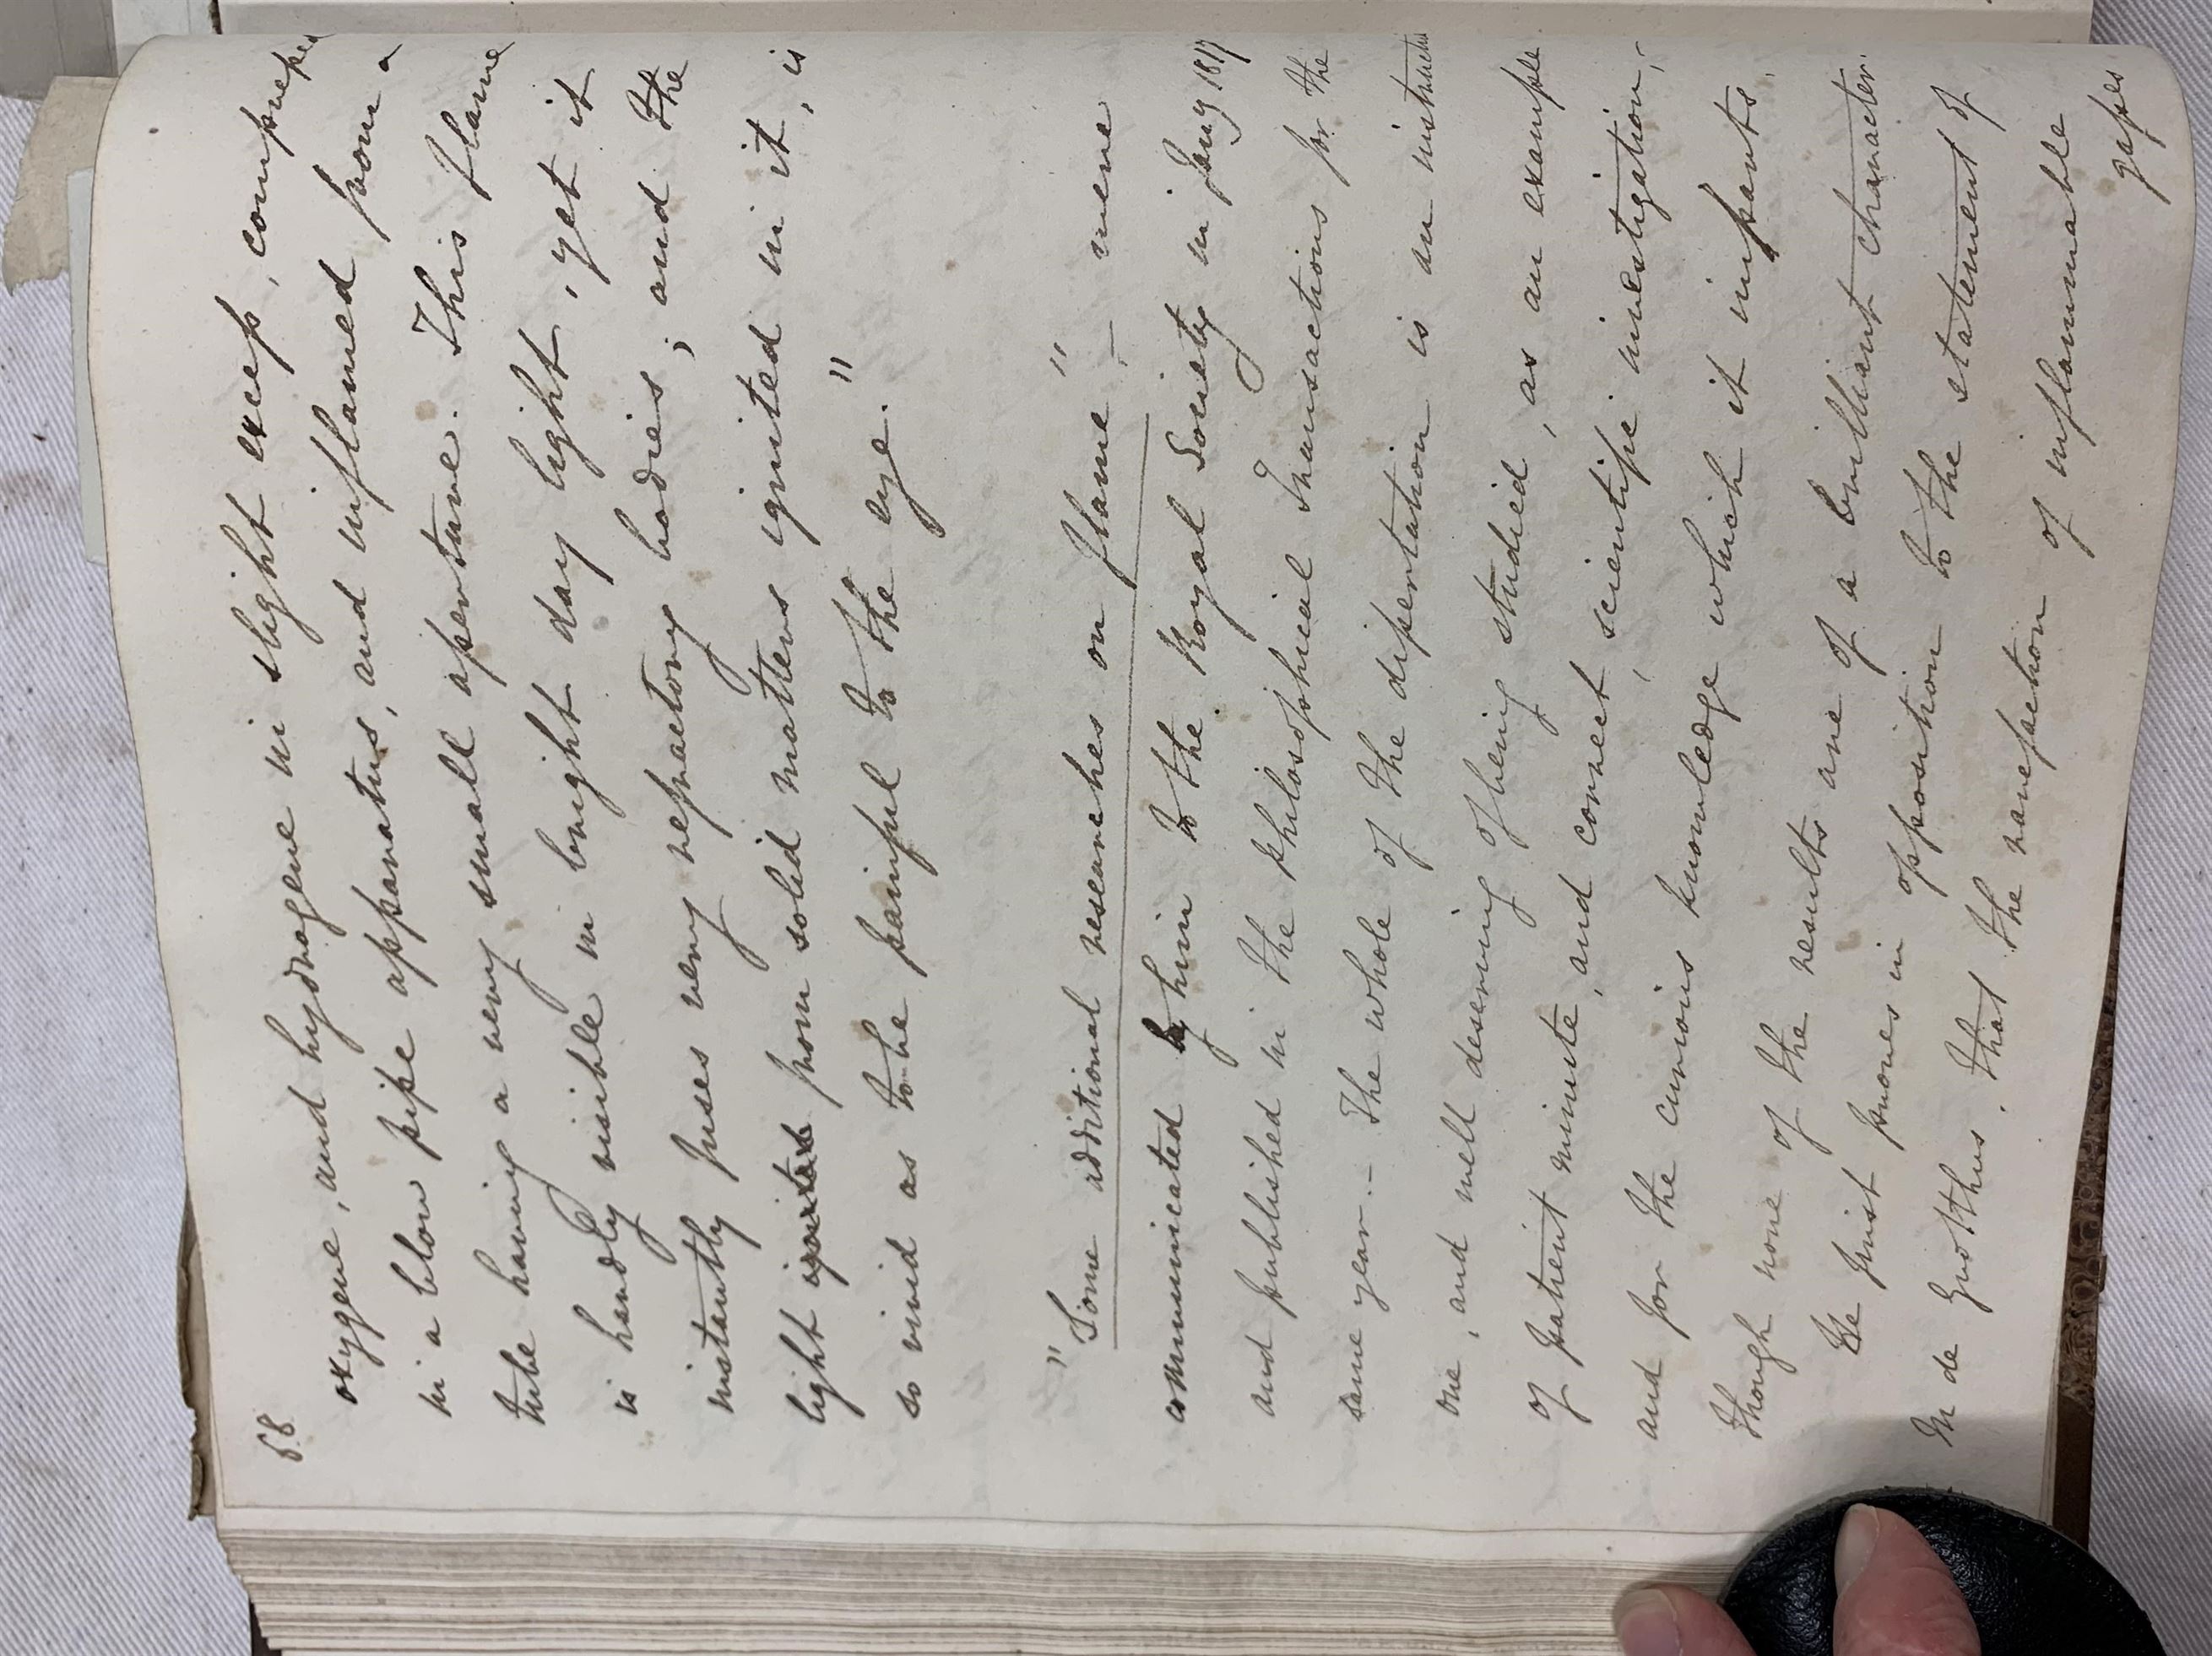 68
oxygene, and hydrogene in slight excess, compressed
in a blow pipe apparatus, and inflamed from a
tube having a very small aperture. This flame
is hardly visible in bright day light, yet it
instantly fuses very refractory bodies; and the
light ignited from solid matters ignited in it, is
so vivid as to be painful to the eye."
"Some additional researches on flame" – were
communicated by him to the Royal Society in Jany 1817
and published in the Philosophical Transactions for the
same year. – The whole of the dissertation is an instructive
one, and well deserving of being studied, as an example
of patient minute, and correct, scientific investigation, –
and for the curious knowledge which it imparts,
though none of the results are of a brilliant character.
He first proves in opposition to the statement of
M de Grotthus, that the rarefaction of inflammable
gases